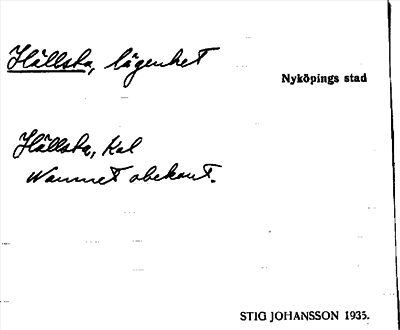 Hällsta, lägenhet
Nyköpings stad
Hällsta, Kal
Namnet obekant.
STIG JOHANSSON 1935.